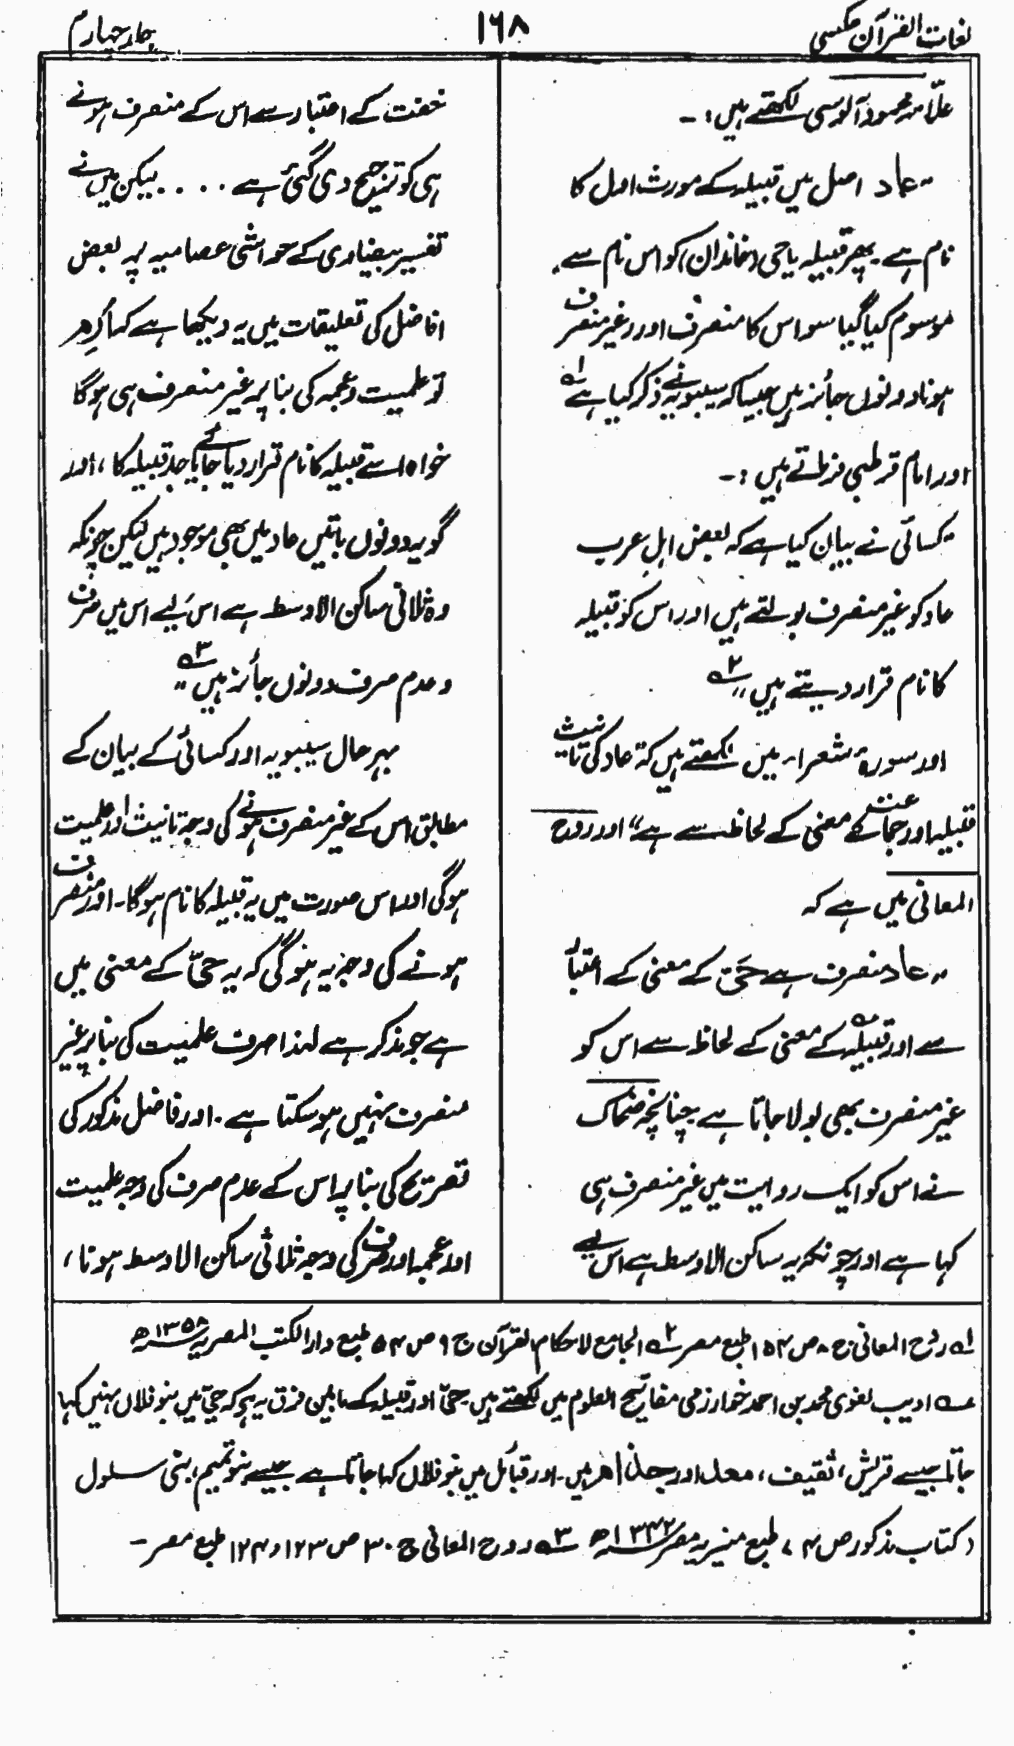 لغات القرآن عکسی
۱۶۸
جلد چہارم
علامہ محمود آلوسی لکھتے ہیں:۔
"عاد اصل میں قبیلہ کے مورث اول کا
نام ہے۔ پھر قبیلہ یا حی (خاندان) کو اس نام سے
موسوم کیا گیا سو اس کا منصرف اور غیر منصرف
ہونا دونوں جائز ہیں جیسا کہ سیبویہ نے ذکر کیا ہے ۱ے
اور امام قرطبی فرماتے ہیں :۔
"کسائی نے بیان کیا ہے کہ بعض اہل عرب
عاد کو غیر منصرف بولتے ہیں اور اس کو قبیلہ
کا نام قرار دیتے ہیں" ۲ے
اور سورۂ شعراء میں لکھتے ہیں کہ "عاد کی تانیث
قبیلہ اور جماعت کے معنی کے لحاظ سے ہے" اور روح
المعانی میں ہے کہ
"عاد منصرف ہے حَیّ کے معنی کے اعتبار
سے اور قبیلہ کے معنی کے لحاظ سے اس کو
غیر منصرف بھی بولا جاتا ہے چنانچہ ضحاک
نے اس کو ایک روایت میں غیر منصرف ہی
کہا ہے اور چونکہ یہ ساکن الاوسط ہے اس لیے
خفت کے اعتبار سے اس کے منصرف ہونے
ہی کو ترجیح دی گئی ہے .... لیکن میں نے
تفسیر بیضاوی کے حواشی عصامیہ پر بعض
افاضل کی تعلیقات میں یہ دیکھا ہے کہ اگر
تو علمیت و عجمہ کی بنا پر غیر منصرف ہی ہوگا
خواہ اسے قبیلہ کا نام قرار دیا جائے یا جد قبیلہ کا، اور
گو یہ دونوں باتیں عاد میں بھی موجود ہیں لیکن چونکہ
وہ ثلاثی ساکن الاوسط ہے اس لیے اس میں صرف
و عدم صرف دونوں جائز ہیں" ۳ے
بہر حال سیبویہ اور کسائی کے بیان کے
مطابق اس کے غیر منصرف ہونے کی وجہ تانیث اور علمیت
ہوگی اور اس صورت میں یہ قبیلہ کا نام ہوگا۔ اور منصرف
ہونے کی وجہ یہ ہوگی کہ یہ حیّ کے معنی میں
ہے جو مذکر ہے لہذا صرف علمیت کی بنا پر غیر
منصرف نہیں ہوسکتا ہے۔ اور فاضل مذکور کی
تصریح کی بنا پر اس کے عدم صرف کی وجہ علمیت
اور عجمہ اور صرف کی وجہ ثلاثی ساکن الاوسط ہونا،
۱ے روح المعانی ج ۸ ص ۱۵۴ طبع مصر ۲ے الجامع لاحکام القرآن ج ۹ ص ۵۴ طبع دار الکتب المصریہ ۱۳۵۸ھ
ے ادیب لغوی محمد بن احمد خوارزمی مفاتیح العلوم میں لکھتے ہیں حیّ اور قبیلہ کے مابین فرق یہ ہے کہ حیّ میں بنو فلاں نہیں کہا
جاتا جیسے قریش، ثقیف، معد اور جذام ہیں۔ اور قبائل میں بنو فلاں کہا جاتا ہے جیسے بنو تمیم، بنی سلول
(کتاب مذکور ص ۷۴ طبع منیریہ مصر ۱۳۴۲ھ ۳ے روح المعانی ج ۳۰ ص ۱۲۳ و ۱۲۴ طبع مصر۔